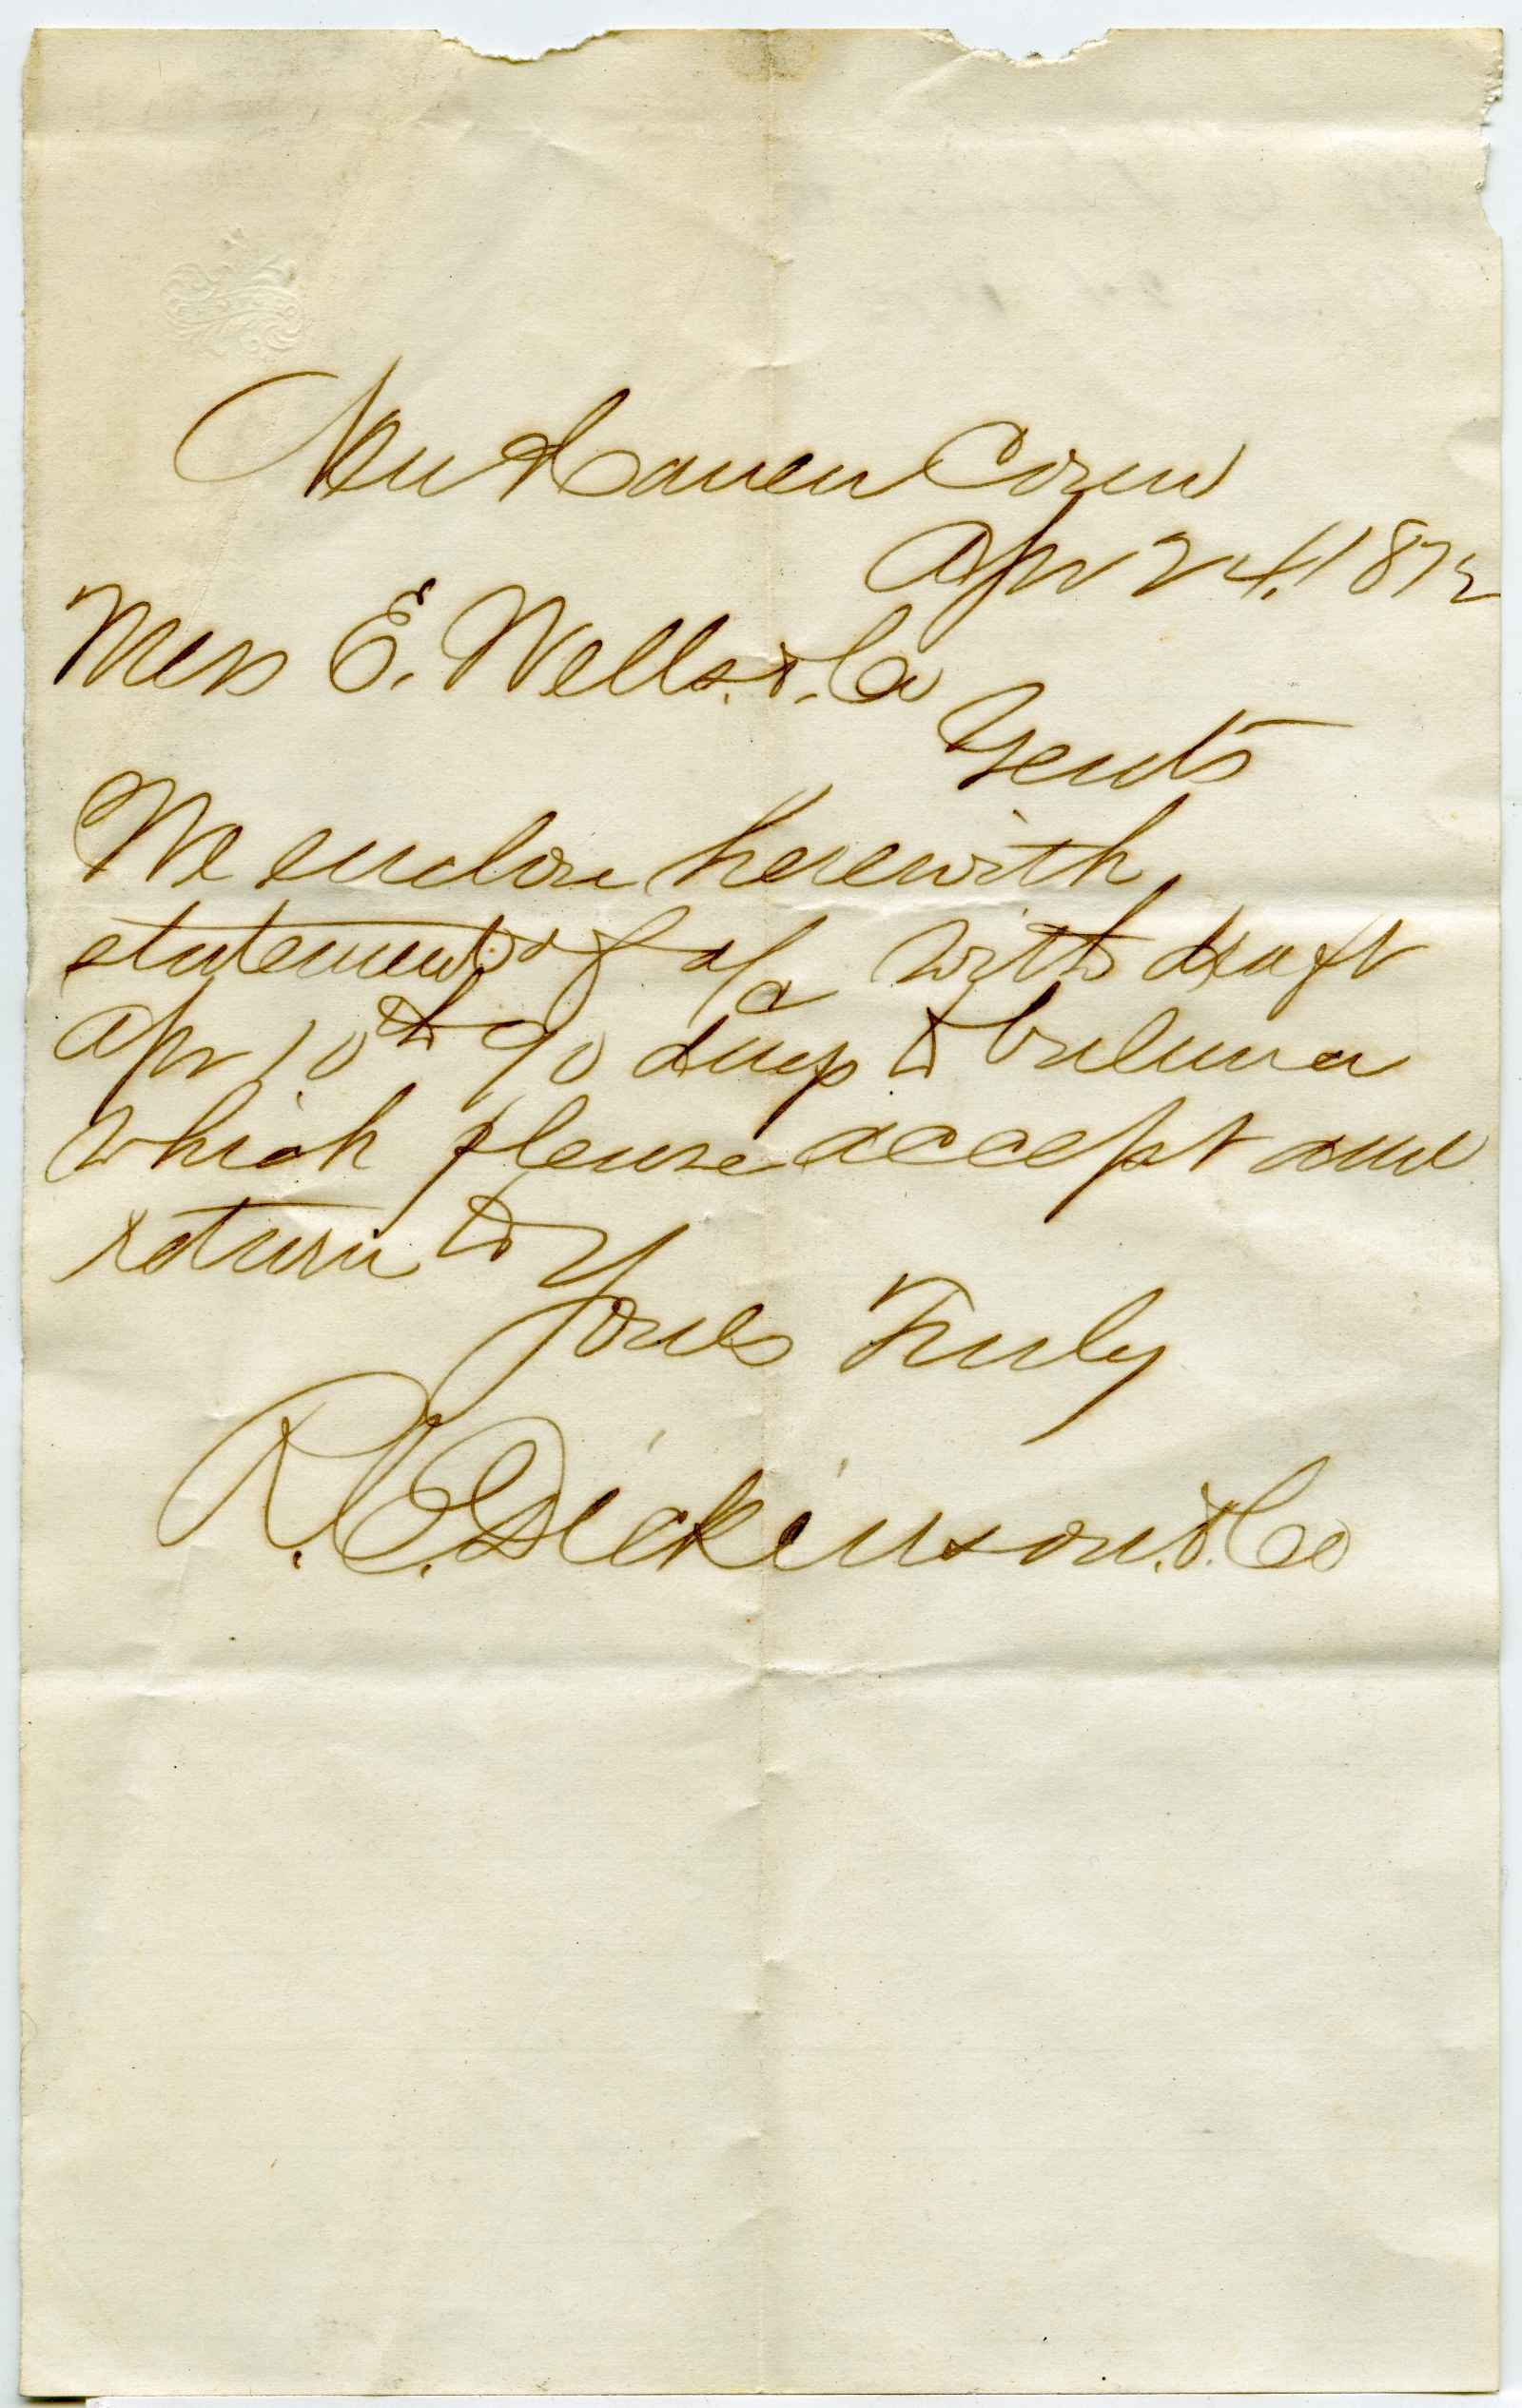 New Haven Conn
Apr 24, 1872
Mess E. Wells. & Co
Gents
We enclose herewith
statement of a/c with draft
Apr 10th 90 days to balance
which please accept and
return to
Yours Truly
R. E. Dickinson. & Co